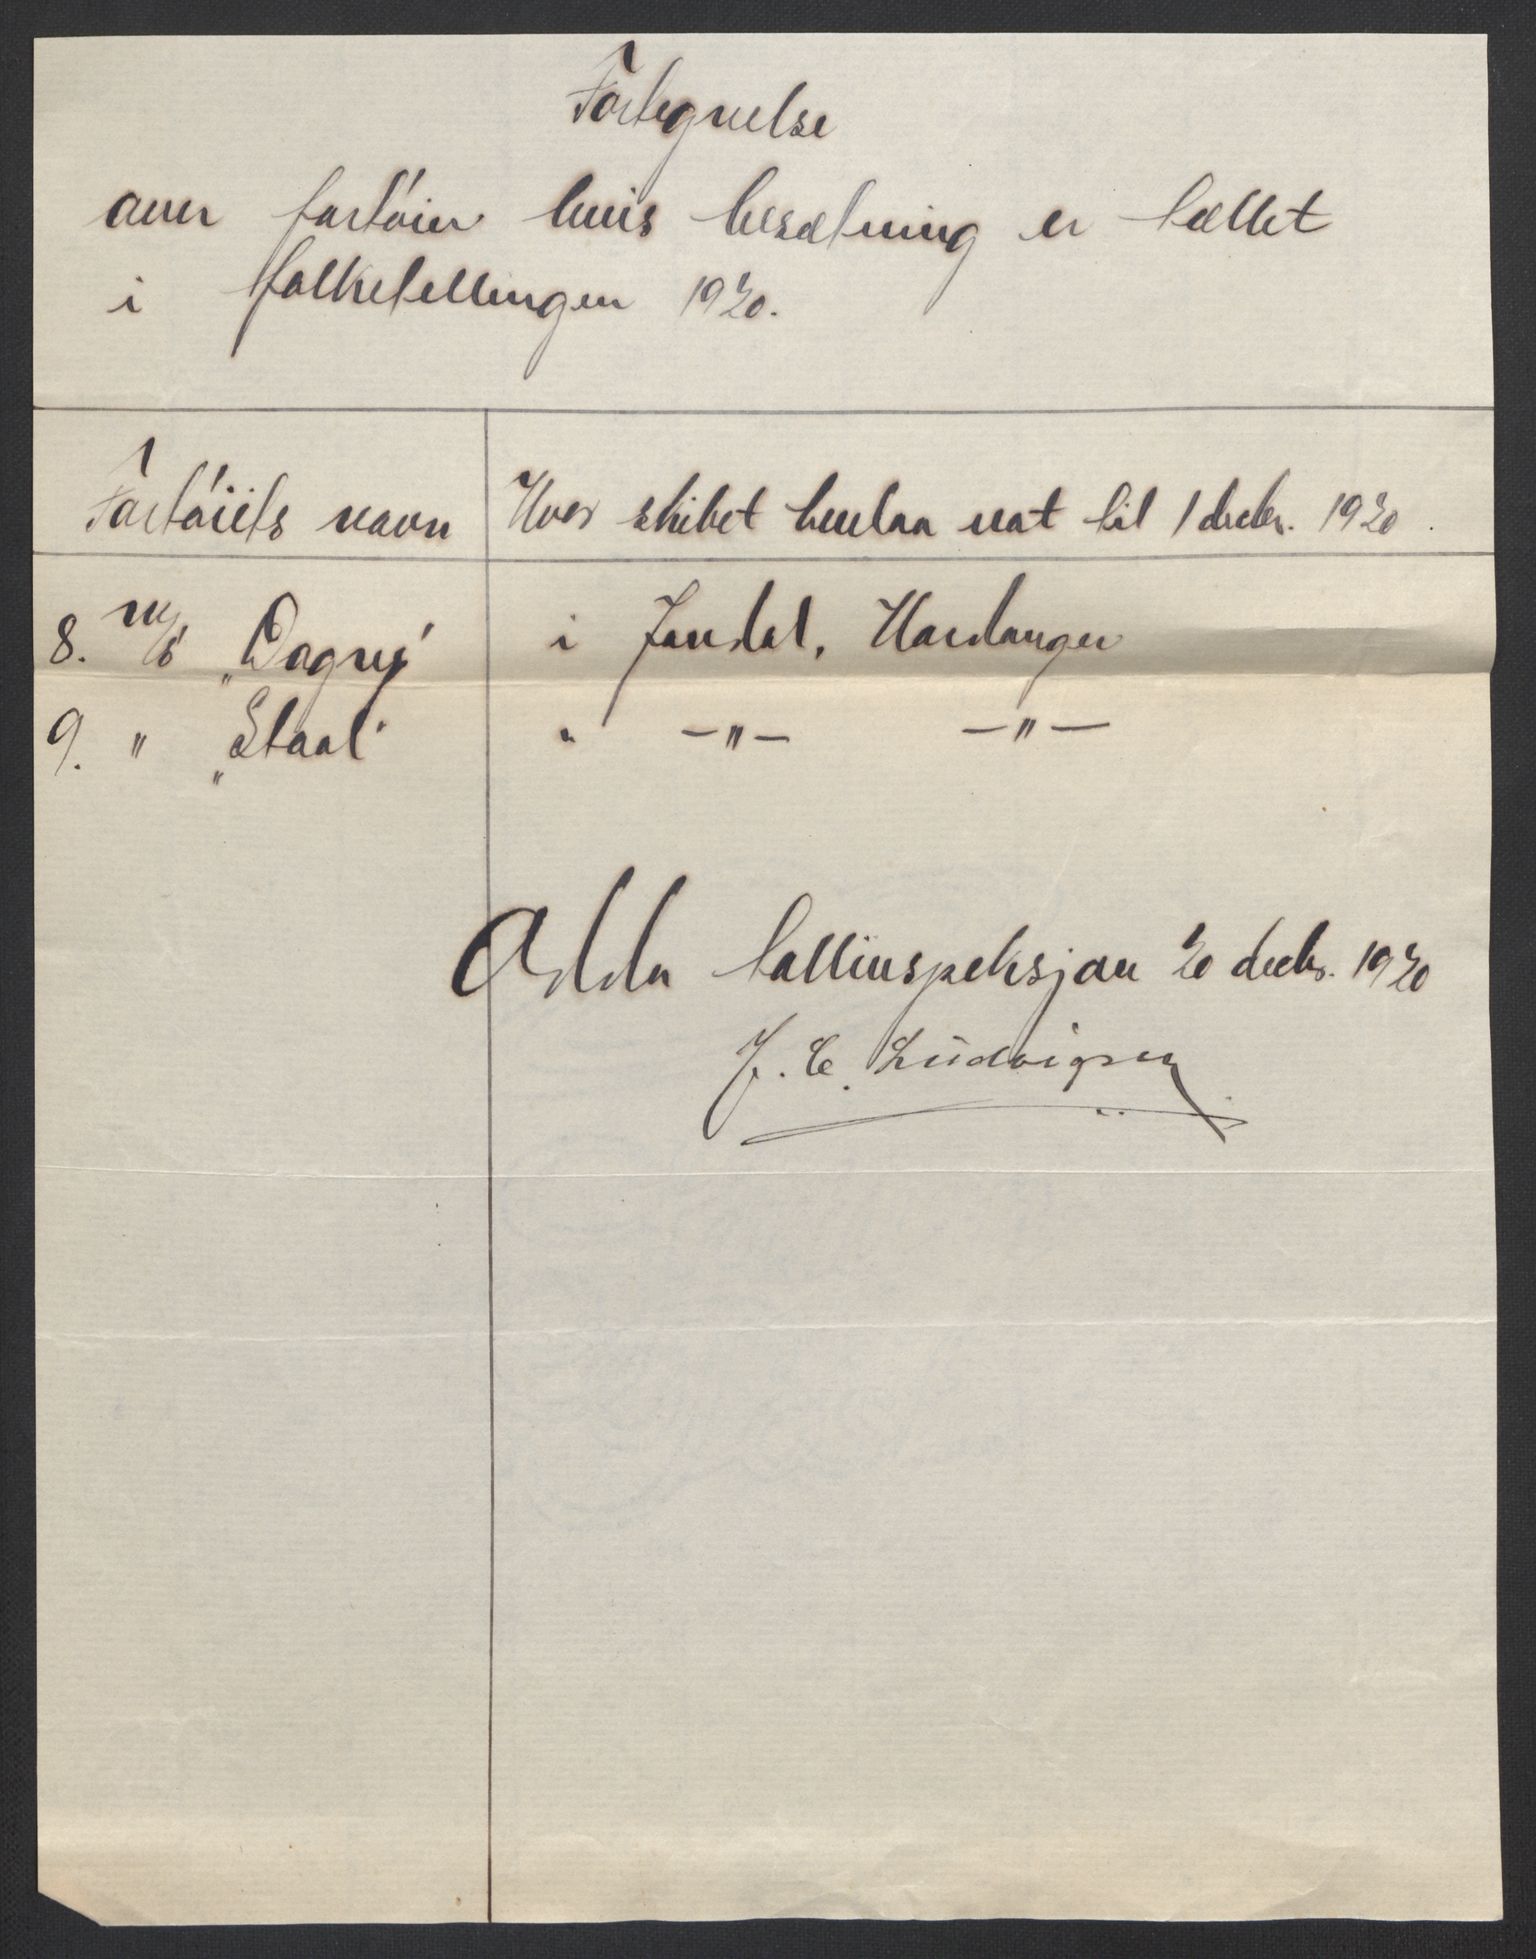 Fortegnelse
over fartøier hvis besætning er tællet
i folketellingen 1920.
Fartøiets navn Hvor skibet henlaa nat til 1 decbr. 1920.
8. m/s „Dagny" i Jondal, Hardanger
9. " „Staal" " —"— —"—
Odda tollinspeksjon 20 decbr. 1920
J. C. Ludvigsen